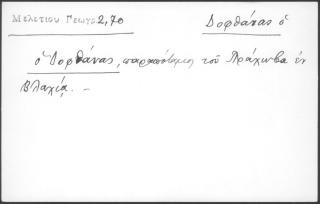 Μελετίου Γεωγρ 2,70
Δορθάνας ὁ
ὁ Δορθάνας, παραπόταμος τοῦ Πράχοβα ἐν
Βλαχίᾳ. –